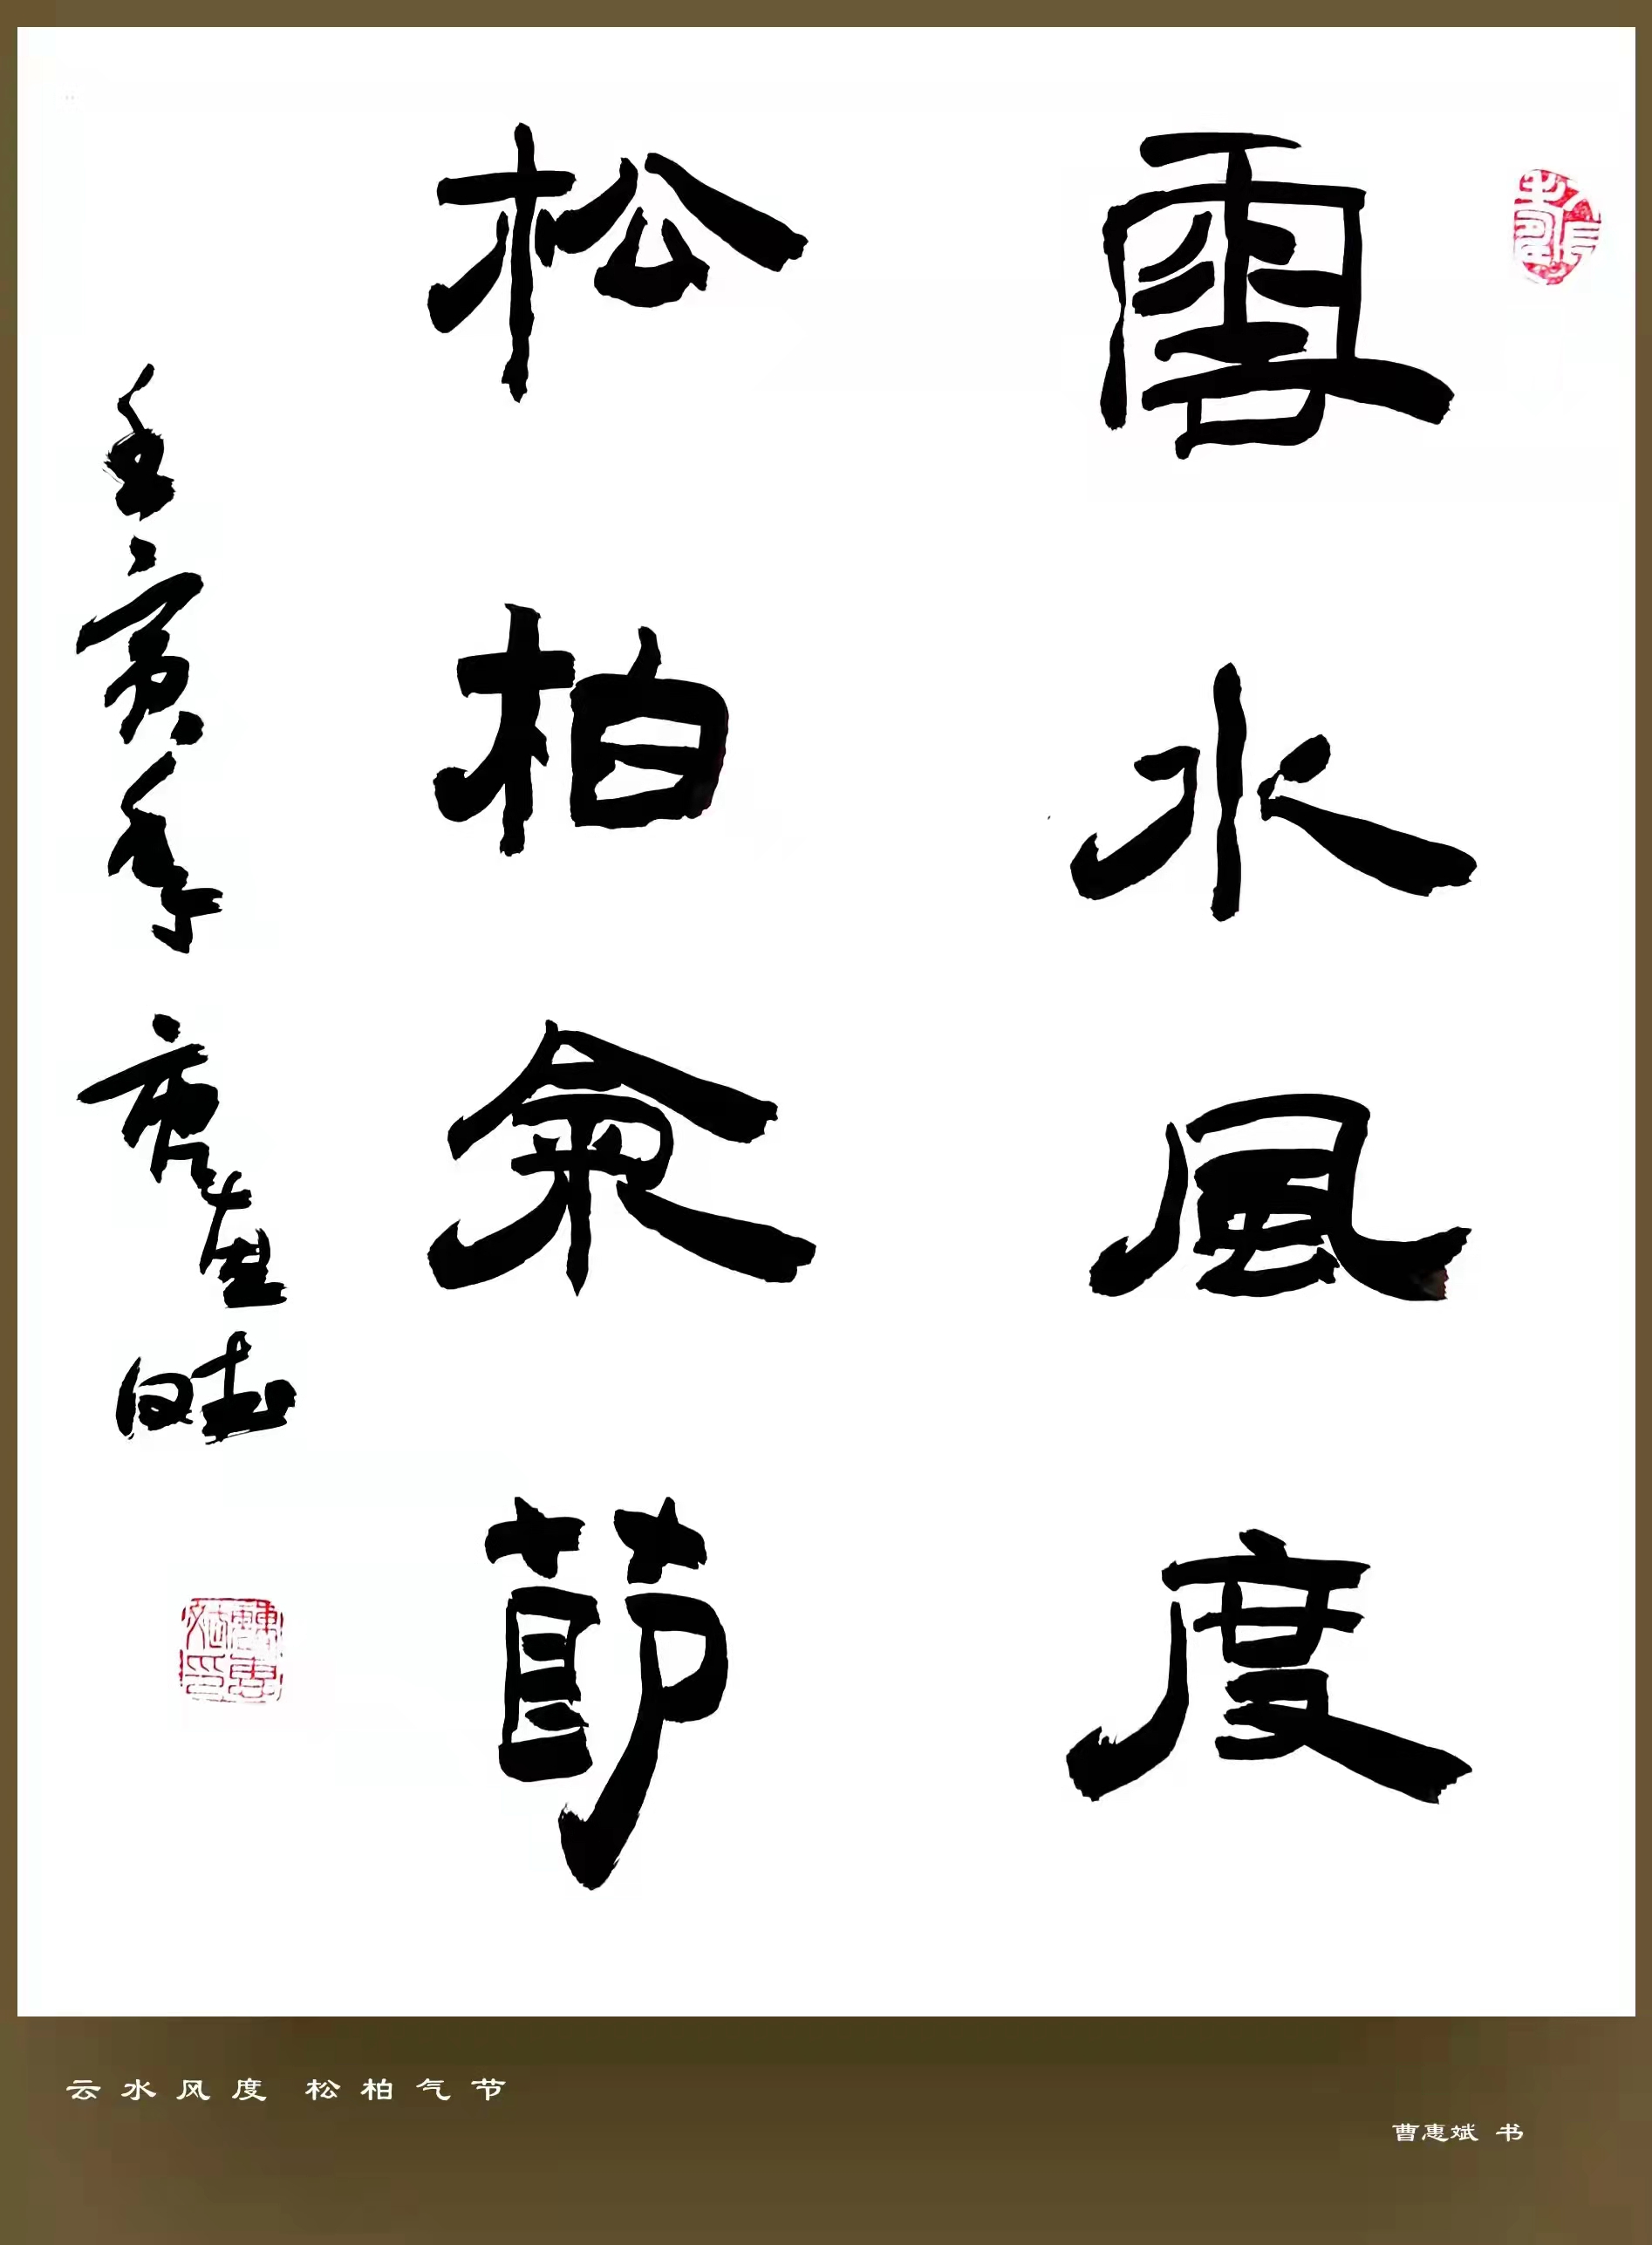 雲水風度
松柏氣節
壬寅年
云水风度 松柏气节
曹惠斌 书